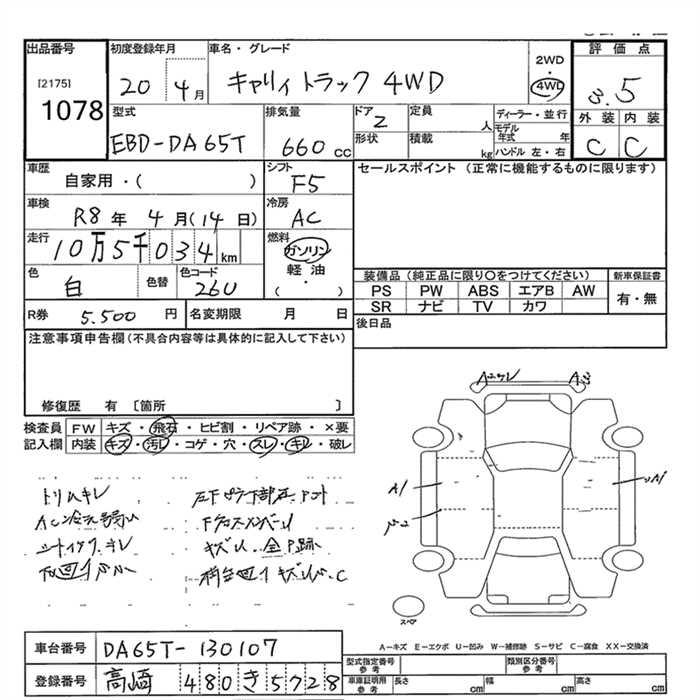 出品番号
[2175]
1078
初度登録年月
20 年 4月
車名・グレード
キャリィ トラック 4WD
2WD
・
4WD
評価点
3.5
型式
EBD-DA65T
排気量
660 cc
ドア
2
定員
人
形状
積載
kg
ディーラー・並行
モデル年式 年
ハンドル 左・右
外装 内装
C C
車歴
自家用・( )
シフト
F5
セールスポイント (正常に機能するものに限ります)
車検
R8年 4月(14日)
冷房
AC
走行
10万5千034km
燃料
ガソリン
・
軽油
・
( )
色
白
色替
色コード
26U
装備品 (純正品に限り○をつけてください)
新車保証書
PS PW ABS エアB AW
有・無
SR ナビ TV カワ
R券 5,500 円
名変期限 月 日
後日品
注意事項申告欄(不具合内容等は具体的に記入して下さい)
修復歴 有 [箇所 ]
検査員 FW キズ・飛石・ヒビ割・リペア跡・×要
記入欄 内装 キズ・汚レ・コゲ・穴・スレ・キレ・破レ
トリムキレ
下クロスメンバーU
A1
スペア
A-キズ E-エクボ U-凹み W-補修跡 S-サビ C-腐食 XX-交換済
車台番号 DA65T-130107
登録番号 高崎 480き5728
型式指定番号 参考
類別区分番号 参考
車庫証明用 参考
長さ cm
幅 cm
高さ cm